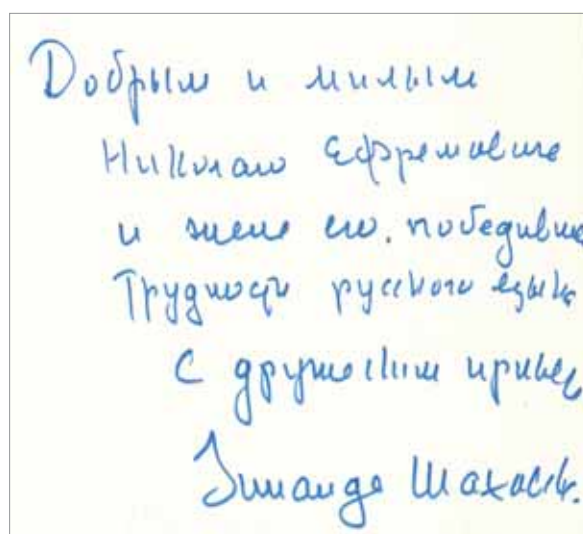 Добрым и милым
Николаю Ефремовичу
и жене его, победивше
трудности русского языка
с дружеским приве
Зинаида Шаховск.